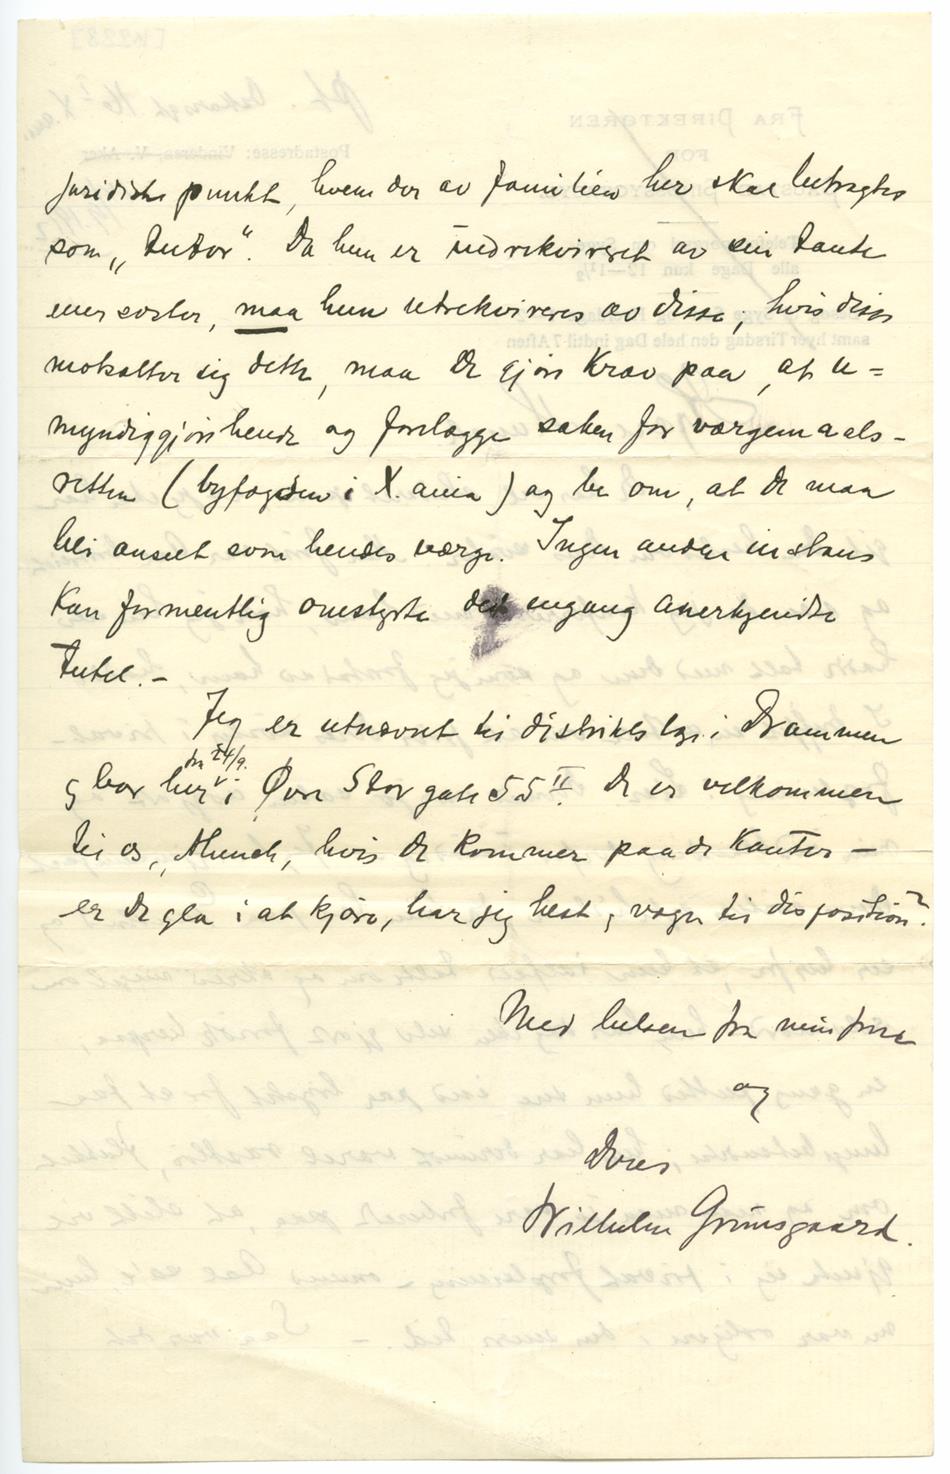 juridiske punkt, hvem der av familien her skal betragtes
som „tutor“. Da hun er indrekvireret av sin tante
eller søster, maa hun utrekvireres av disse; hvis disse
motsætter sig dette, maa De gjøre krav paa, at u=
myndiggjøre hende og forelægge saken for værgemaals-
retten (byfogden i X.ania) og be om, at De maa
bli anseet som hendes værge. Ingen anden instans
kan formentlig omstyrte det engang anerkjendte
tutel.-
Jeg er utnævnt til distriktslæge i Drammen
og bor her fra 24/9. i Øvre Storgate 55 II. De er velkommen
til os, Munch, hvis De kommer paa de kanter -
er De gla i at kjøre, har jeg hest og vogn til disposition.
Med hilsen fra min frue
og
Deres
Wilhelm Grimsgaard.
FRA DIREKTØREN
FOR
Postadresse: Vinderen, V. Aker
alle Dage kun 12-1½
samt hver Tirsdag den hele Dag indtil 7 Aften